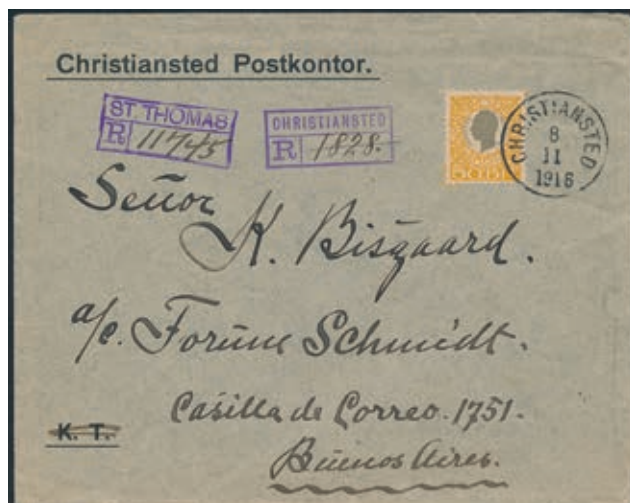 Christiansted Postkontor.
ST. THOMAS
R 11745
CHRISTIANSTED
R 1828.
CHRISTIANSTED
8
11
1916
Señor
K. Bisgaard.
a/c. Schmidt.
Casilla de Correo. 1751.
K. T.
Buenos Aires.